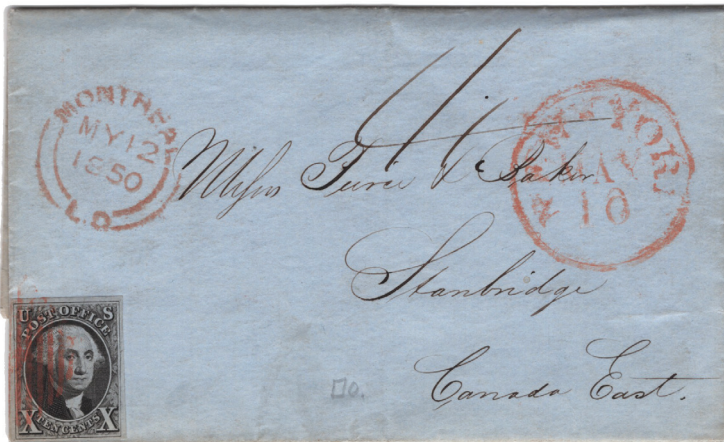 MONTREAL
MY 12
1850
L.C.
NEW YORK
MAY
10
Messrs Peirce & Baker
Stanbridge
Canada East.
U S
POST OFFICE
X TEN CENTS X